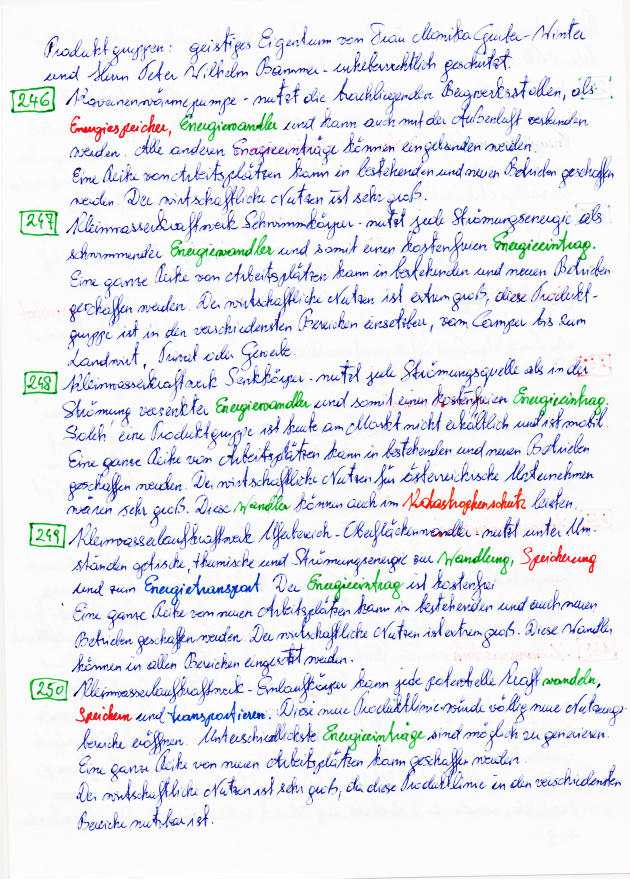 Produktgruppen: geistiges Eigentum von Frau Monika Gruber-Winter
und Herrn Peter Wilhelm Bammer - urheberrechtlich geschützt.
246 Kavernenwärmepumpe - nutzt die brachliegenden Bergwerksstollen, als
Energiespeicher, Energiewandler und kann auch mit der Außenluft verbunden
werden. Alle anderen Energieeinträge können eingebunden werden.
Eine Reihe von Arbeitsplätzen kann in bestehenden und neuen Betrieben geschaffen
werden. Der wirtschaftliche Nutzen ist sehr groß.
247 Kleinwasserkraftwerk Schwimmkörper - nutzt jede Strömungsenergie als
schwimmender Energiewandler und somit einen kostenfreien Energieeintrag.
Eine ganze Reihe von Arbeitsplätzen kann in bestehenden und neuen Betrieben
geschaffen werden. Der wirtschaftliche Nutzen ist extrem groß, diese Produkt-
gruppe ist in den verschiedensten Bereichen einsetzbar, vom Camper bis zum
Landwirt, Privat oder Gewerbe.
248 Kleinwasserkraftwerk Senkkörper - nutzt jede Strömungsquelle als in der
Strömung versenkter Energiewandler und somit einen kostenfreien Energieeintrag.
Solch eine Produktgruppe ist heute am Markt nicht erhältlich und ist mobil.
Eine ganze Reihe von Arbeitsplätzen kann in bestehenden und neuen Betrieben
geschaffen werden. Der wirtschaftliche Nutzen für österreichische Unternehmen
wären sehr groß. Diese Wandler können auch im Katastrophenschutz leisten.
249 Kleinwasserlaufkraftwerk Uferbereich - Oberflächenwandler - nutzt unter Um-
ständen optische, thermische und Strömungsenergie zur Wandlung, Speicherung
und zum Energietransport. Der Energieeintrag ist kostenfrei
Eine ganze Reihe von neuen Arbeitsplätzen kann in bestehenden und auch neuen
Betrieben geschaffen werden. Der wirtschaftliche Nutzen ist extrem groß. Diese Wandler
können in allen Bereichen eingesetzt werden.
250 Kleinwasserlaufkraftwerk - Einlaufkörper kann jede potentielle Kraft wandeln,
speichern und transportieren. Diese neue Produktlinie würde völlig neue Nutzungs-
bereiche eröffnen. Unterschiedlichste Energieeinträge sind möglich zu generieren.
Eine ganze Reihe von neuen Arbeitsplätzen kann geschaffen werden.
Der wirtschaftliche Nutzen ist sehr groß, da diese Produktlinie in den verschiedensten
Bereichen nutzbar ist.